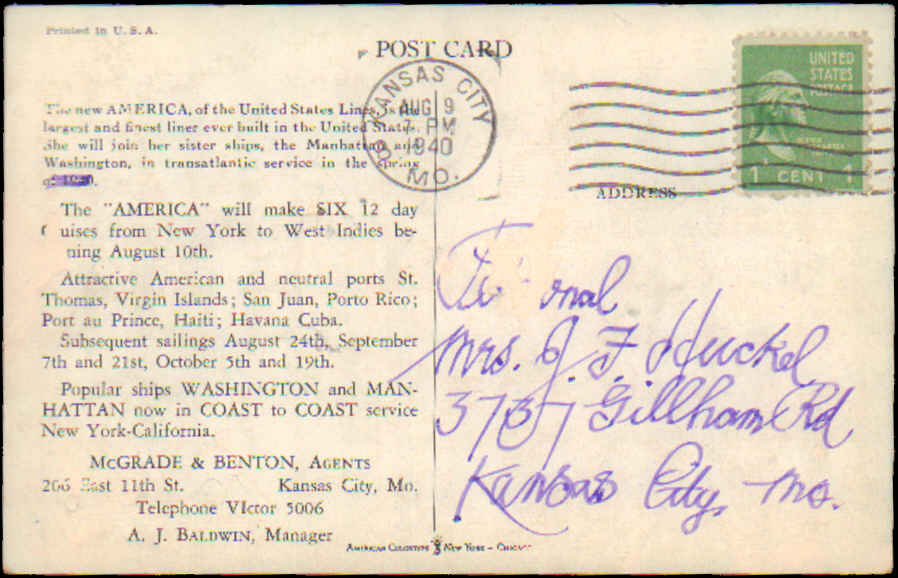 Printed in U. S. A.
POST CARD
KANSAS CITY
AUG 9
7 PM
1940
MO.
UNITED
STATES
POSTAGE
1 CENT 1
The new AMERICA, of the United States Lines, is the
largest and finest liner ever built in the United States.
She will join her sister ships, the Manhattan and
Washington, in transatlantic service in the spring
ADDRESS
The "AMERICA" will make SIX 12 day
uises from New York to West Indies be-
ning August 10th.
Attractive American and neutral ports St.
Thomas, Virgin Islands; San Juan, Porto Rico;
Port au Prince, Haiti; Havana Cuba.
Subsequent sailings August 24th, September
7th and 21st, October 5th and 19th.
Popular ships WASHINGTON and MAN-
HATTAN now in COAST to COAST service
New York-California.
McGRADE & BENTON, AGENTS
206 East 11th St. Kansas City, Mo.
Telephone VIctor 5006
A. J. BALDWIN, Manager
onal
Mrs. J. F. Huckel
3737 Gillham Rd
Kansas City, Mo.
AMERICAN COLORTYPE NEW YORK - CHICAGO